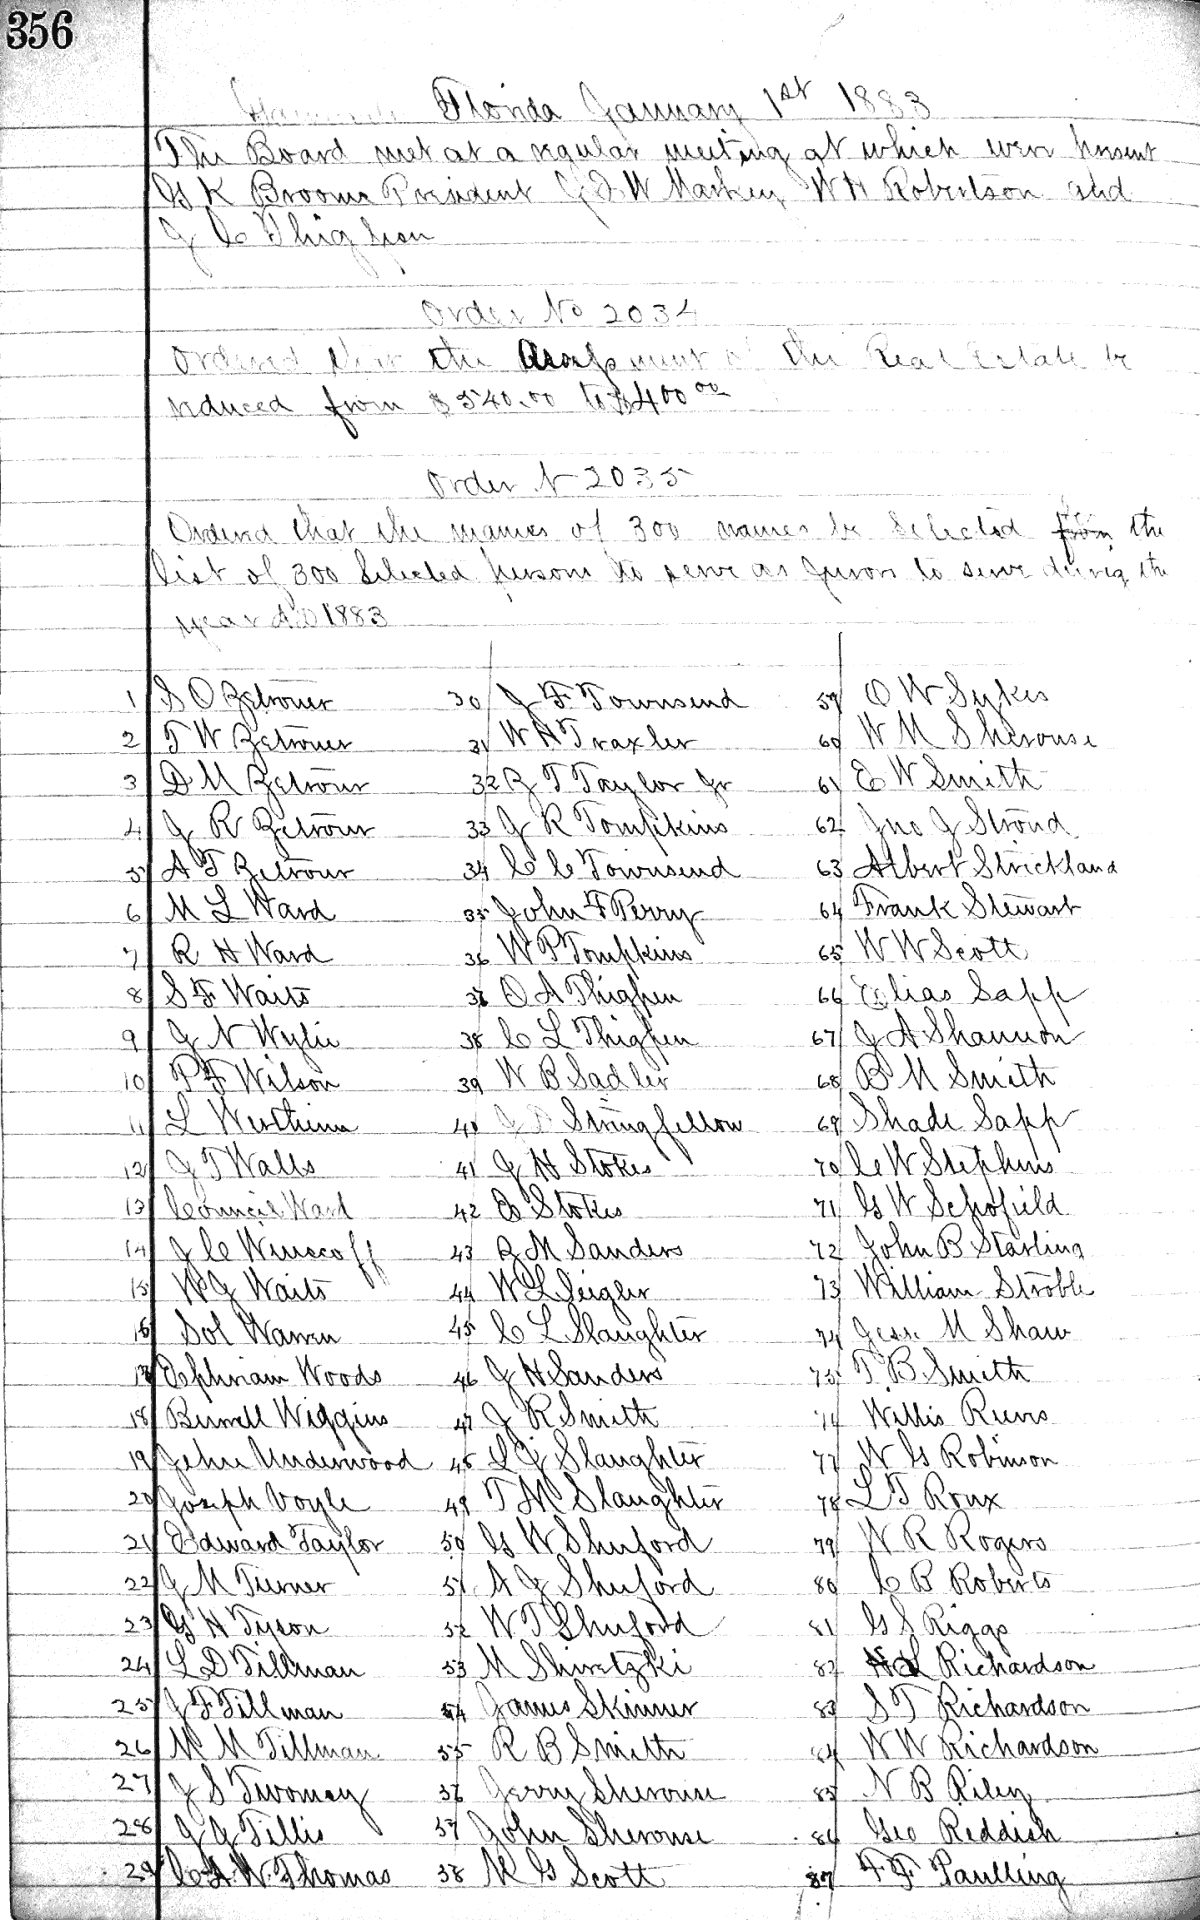 356
Florida January 1st 1883
The Board met at a regular meeting at which were present
G K Broome President J W Markey W H Robertson and
J C Thigpen
Order No 2034
Ordered that the Assessment of the Real Estate be
reduced from $540.00 to $400 00
Order N 2035
Ordered that the names of 300 names be selected from the
list of 300 Selected persons to serve as Jurors to serve during the
year A.D 1883
1 S O Zetrouer
2 T W Zetrouer
3 D M Zetrouer
4 J R Zetrouer
5 A T Zetrouer
6 M L Ward
7 R H Ward
8 S F Waits
9 J N Wylie
10 P F Wilson
11 L Wertheim
12 J T Walls
13 Council Ward
14 J C Winecoff
15 W J Waits
16 Sol Warren
17 Ephriam Woods
18 Burrell Wiggins
19 John Underwood
20 Joseph Voyle
21 Edward Taylor
22 J M Turner
23 G H Tyson
24 L D Tillman
25 J F Tillman
26 M M Tillman
27 J S Twomey
28 J J Tillis
29 C A W Thomas
30 J F Townsend
31 W H Traxler
32 R T Taylor Jr
33 J R Tompkins
34 C C Townsend
35 John F Perry
36 W P Tompkins
37 O A Thigpen
38 C L Thigpen
39 W B Sadler
40 Stringfellow
41 J H Stokes
42 E Stokes
43 R M Sanders
44 W L Seigler
45 C L Slaughter
46 J H Sanders
47 J R Smith
48 L J Slaughter
49 T M Slaughter
50 G W Shuford
51 A J Shuford
52 W T Shuford
53 M Shiretzki
54 James Skinner
55 R B Smith
56 Jerry Sherouse
57 John Sherouse
58 M G Scott
59 O W Sykes
60 W M Sherouse
61 E W Smith
62 Jno J Stroud
63 Albert Strickland
64 Frank Stewart
65 W W Scott
66 Elias Sapp
67 J A Shannon
68 B M Smith
69 Shade Sapp
70 C W Stephens
71 G W Schofield
72 John B Starling
73 William Stroble
74 Jesse M Shaw
75 T B Smith
76 Willis Rives
77 W G Robinson
78 L T Roux
79 W R Rogers
80 C B Roberts
81 G S Riggs
82 Richardson
83 S T Richardson
84 W W Richardson
85 N B Riley
86 Geo Reddish
87 F F Paulling